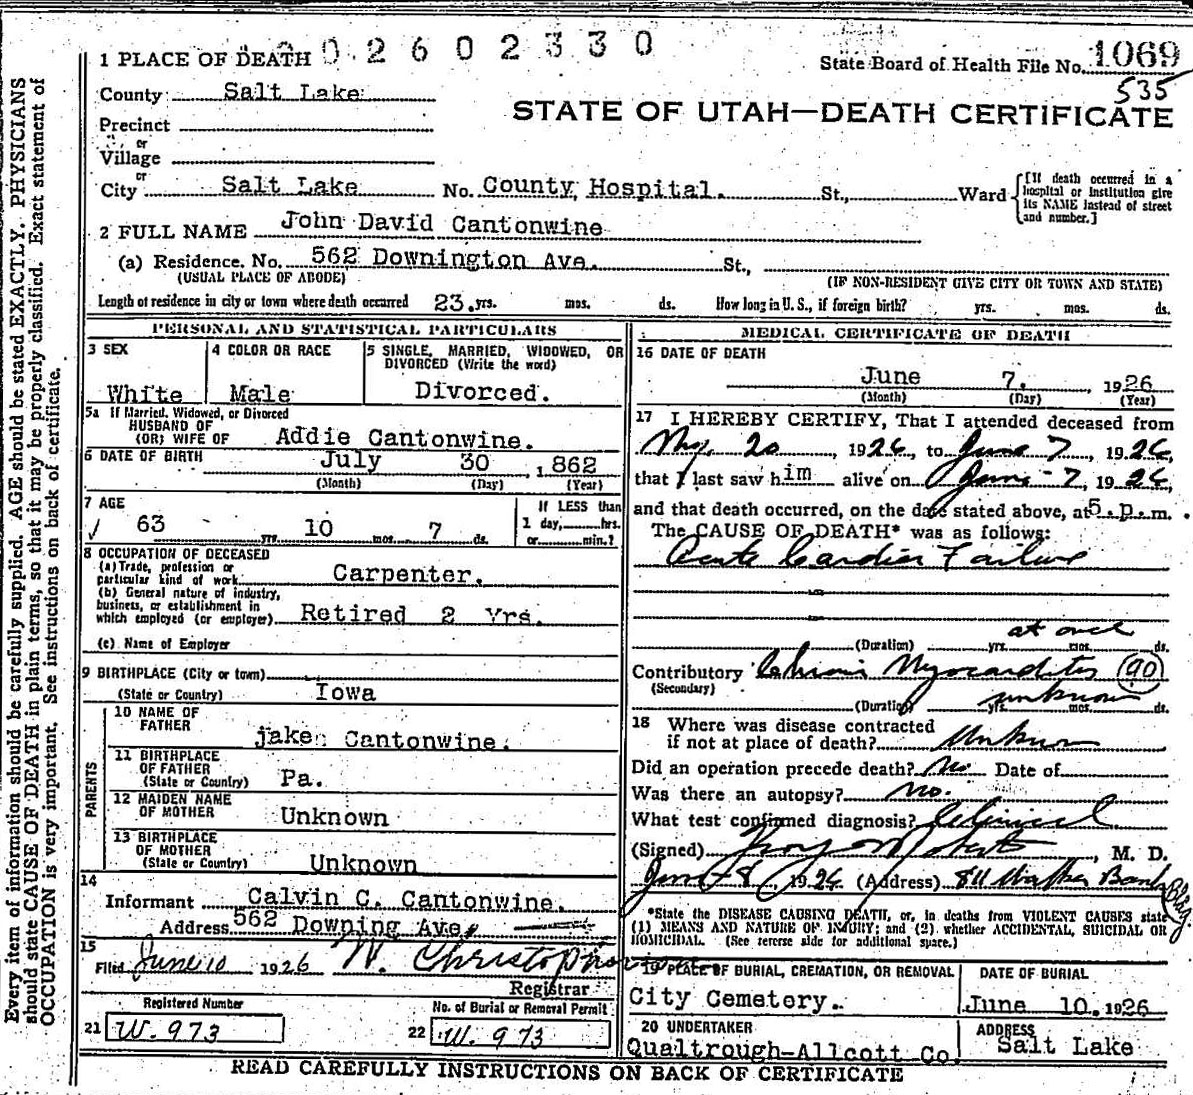 02602330
1 PLACE OF DEATH
State Board of Health File No. 1069
535
County Salt Lake
STATE OF UTAH—DEATH CERTIFICATE
Precinct
or
Village
or
City Salt Lake No. County Hospital. St., Ward
[If death occurred in a hospital or institution give its NAME instead of street and number.]
2 FULL NAME John David Cantonwine
(a) Residence. No. 562 Downington Ave. St.,
(USUAL PLACE OF ABODE) (IF NON-RESIDENT GIVE CITY OR TOWN AND STATE)
Length of residence in city or town where death occurred 23. yrs. mos. ds. How long in U. S., if foreign birth? yrs. mos. ds.
PERSONAL AND STATISTICAL PARTICULARS
3 SEX
White
4 COLOR OR RACE
Male
5 SINGLE, MARRIED, WIDOWED, OR
DIVORCED (Write the word)
Divorced.
5a If Married, Widowed, or Divorced
HUSBAND OF
(OR) WIFE OF Addie Cantonwine.
6 DATE OF BIRTH July 30 1862
(Month) (Day) (Year)
7 AGE
63 yrs. 10 mos. 7 ds.
If LESS than
1 day, hrs.
or min.?
8 OCCUPATION OF DECEASED
(a) Trade, profession or
particular kind of work Carpenter.
(b) General nature of industry,
business, or establishment in
which employed (or employer) Retired 2 Yrs.
(c) Name of Employer
9 BIRTHPLACE (City or town)
(State or Country) Iowa
PARENTS
10 NAME OF
FATHER
jake Cantonwine.
11 BIRTHPLACE
OF FATHER
(State or Country) Pa.
12 MAIDEN NAME
OF MOTHER Unknown
13 BIRTHPLACE
OF MOTHER
(State or Country) Unknown
14
Informant Calvin C. Cantonwine.
Address 562 Downing Ave.
15
Filed June 10 1926 W. Christopherson
Registrar
Registered Number
21 W. 973
No. of Burial or Removal Permit
22 W. 973
MEDICAL CERTIFICATE OF DEATH
16 DATE OF DEATH
June 7. 1926
(Month) (Day) (Year)
17 I HEREBY CERTIFY, That I attended deceased from
May 20 1926, to June 7, 1926,
that I last saw him alive on June 7, 1926,
and that death occurred, on the date stated above, at 5. p. m.
The CAUSE OF DEATH* was as follows:
Acute Cardiac Failure
at once
(Duration) yrs. mos. ds.
Contributory Chronic Myocarditis (90)
(Secondary)
unknown
(Duration) yrs. mos. ds.
18 Where was disease contracted
if not at place of death? Unknown
Did an operation precede death? No Date of
Was there an autopsy? No.
What test confirmed diagnosis? Clinical
(Signed) , M. D.
June 8 1926 (Address) 811 Walker Bank Bldg.
*State the DISEASE CAUSING DEATH, or, in deaths from VIOLENT CAUSES state
(1) MEANS AND NATURE OF INJURY; and (2) whether ACCIDENTAL, SUICIDAL OR
HOMICIDAL. (See reverse side for additional space.)
19 PLACE OF BURIAL, CREMATION, OR REMOVAL
City Cemetery.
DATE OF BURIAL
June 10. 1926
20 UNDERTAKER
Qualtrough-Allcott Co.
ADDRESS
Salt Lake
READ CAREFULLY INSTRUCTIONS ON BACK OF CERTIFICATE
Every item of information should be carefully supplied. AGE should be stated EXACTLY. PHYSICIANS
should state CAUSE OF DEATH in plain terms, so that it may be properly classified. Exact statement of
OCCUPATION is very important. See instructions on back of certificate.